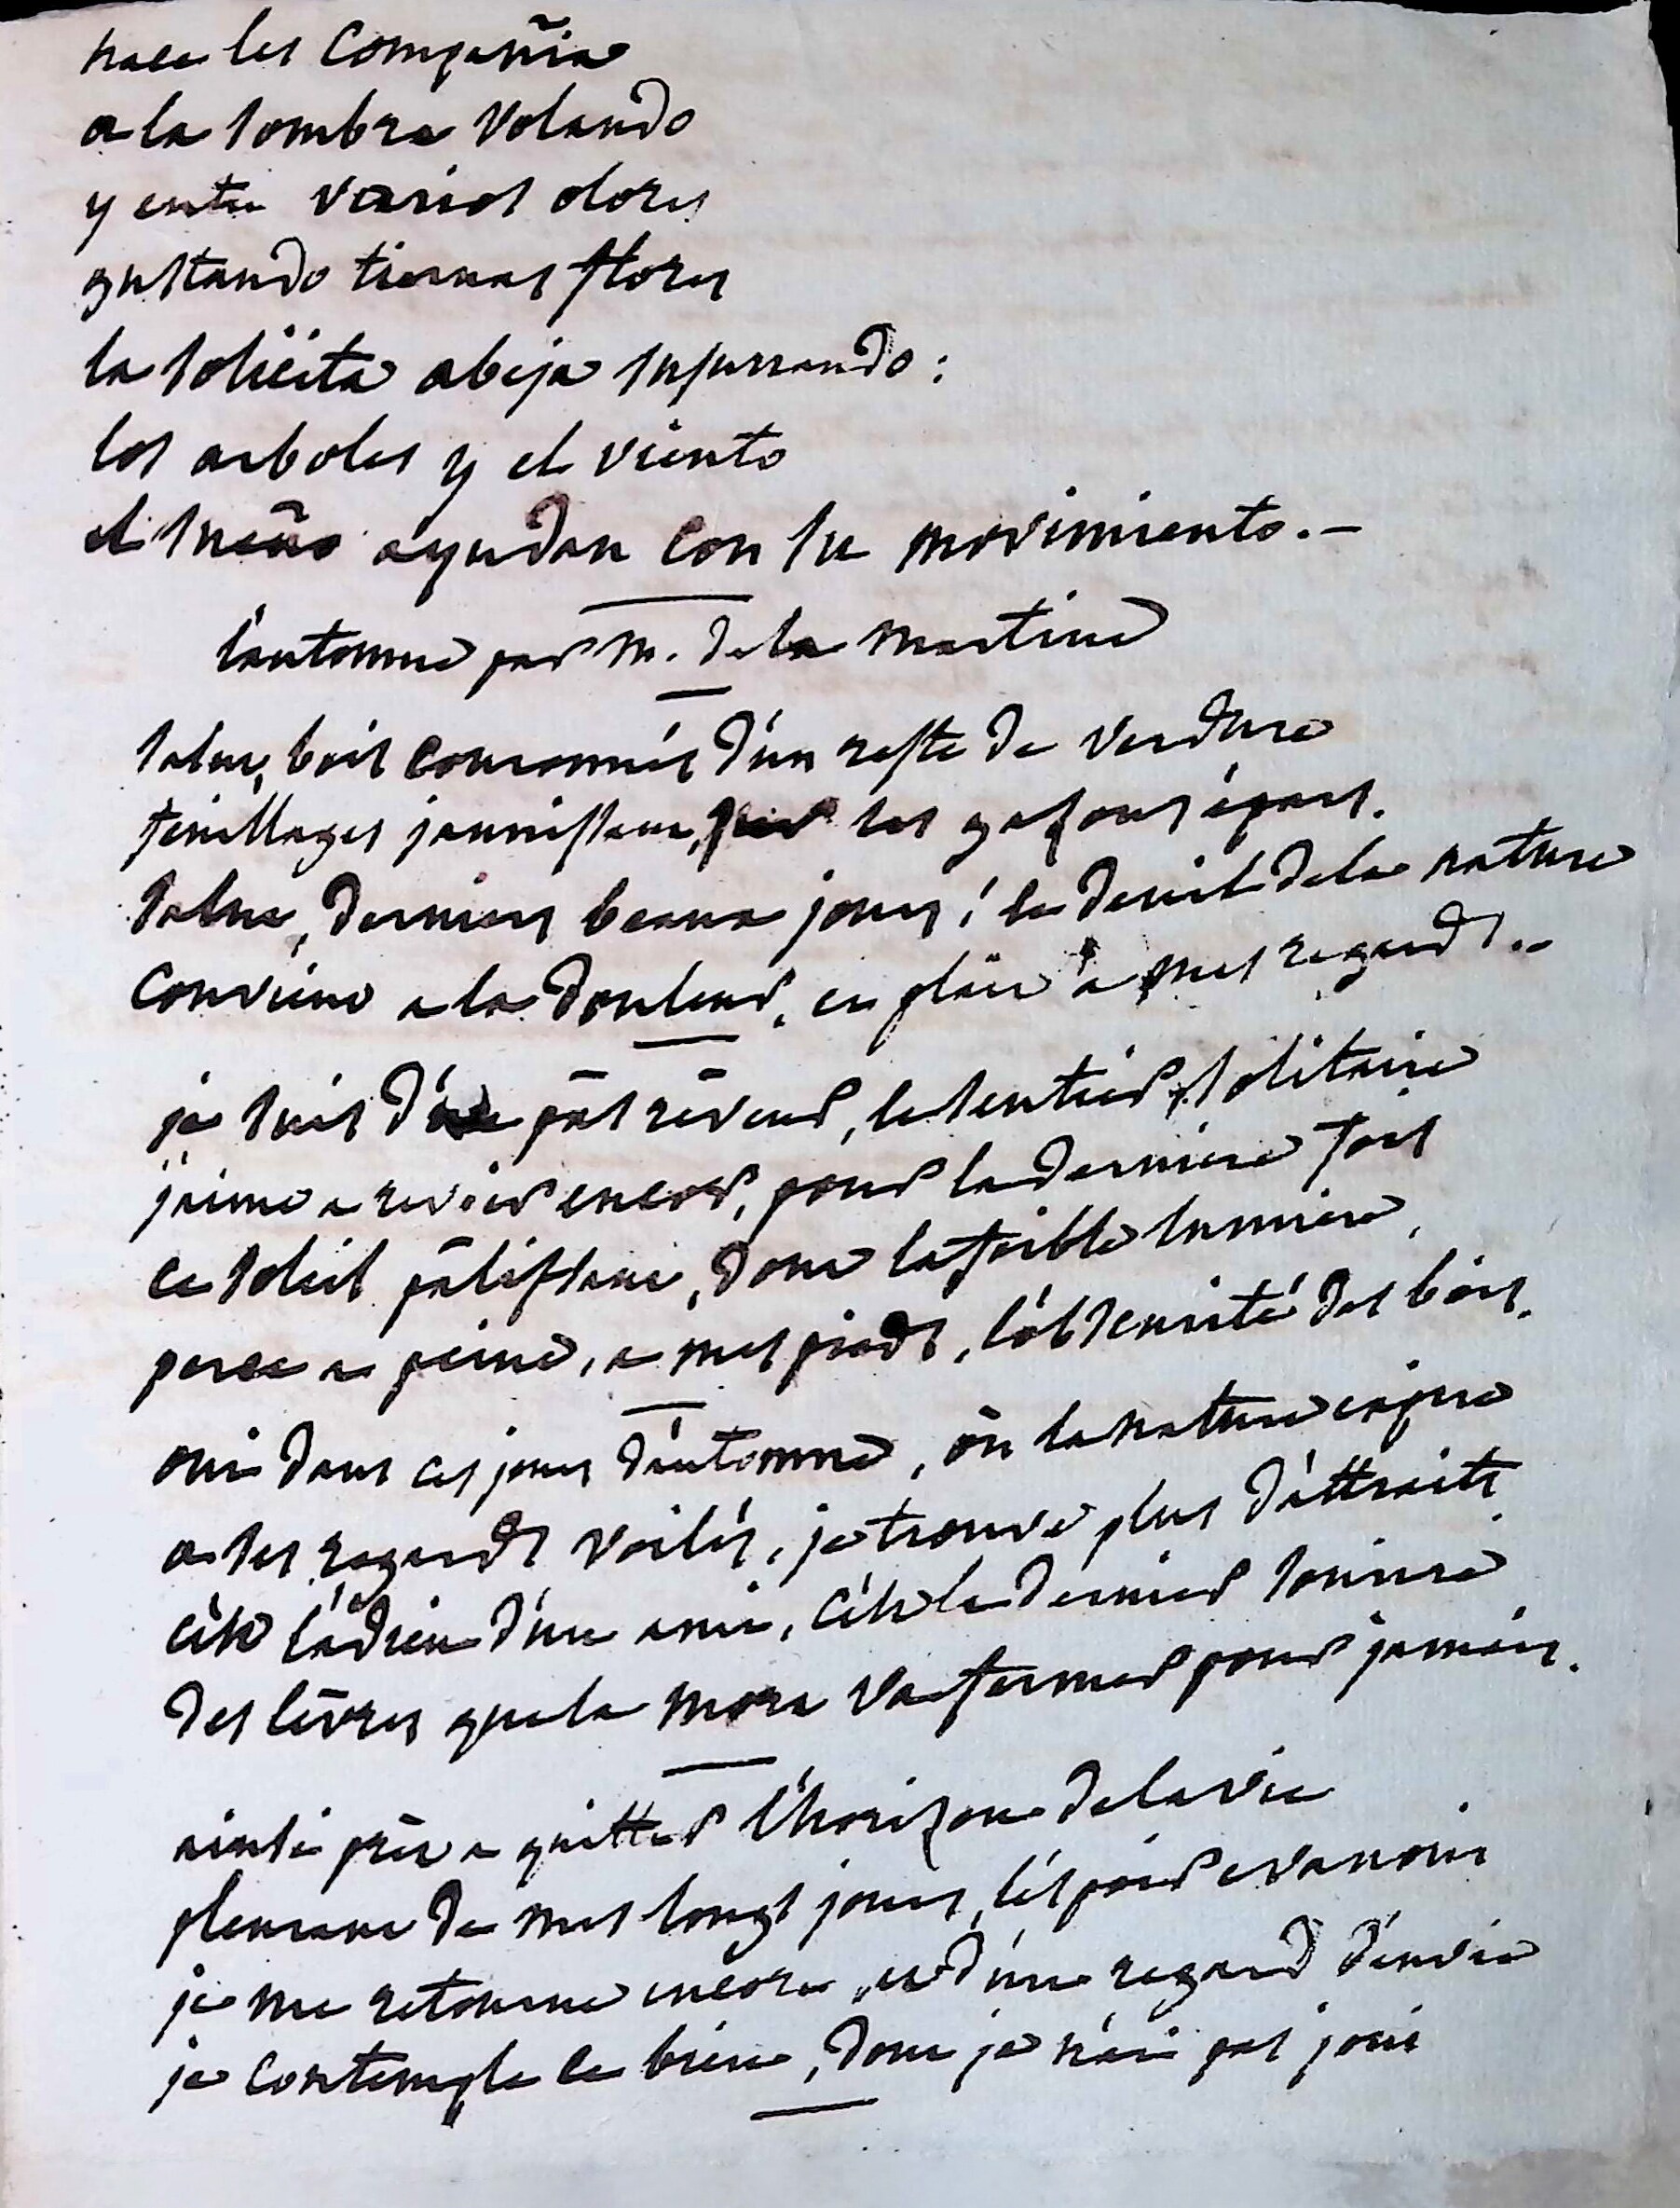 hace les Compañia
a la sombra Volando
y entre varios olores
gustando tiernas flores
la solicita abeja susurrando:
los arboles y el viento
el sueño ayudan con su movimiento.-
l'automne par M. de la Martine
salut, bois couronnés d'un reste de verdure
feuillages jaunissant, sur les gazons épars.
salut, derniers beaux jours! le deuil de la nature
convient a la douleur, et plait a mes regards.-
je suis d'un pas rêveur, le sentier solitaire
j'aime a revoir encor, pour la derniere fois
ce soleil pâlissant, dont la foible lumiere,
perce a peine, a mes pieds, l'obscurité des bois.
oui dans ces jours d'automne, ou la nature expire
a ses regards voilés, je trouve plus d'attraits
c'est l'adieu d'un ami, c'est le dernier sourire
des lèvres que la mort va fermer pour jamais.
ainsi près a quitter l'horizon de la vie
pleurant de mes longs jours, l'espoir evanoui
je me retourne encore, et d'un regard d'envie
je contemple ce bien, dont je n'ai pas joui